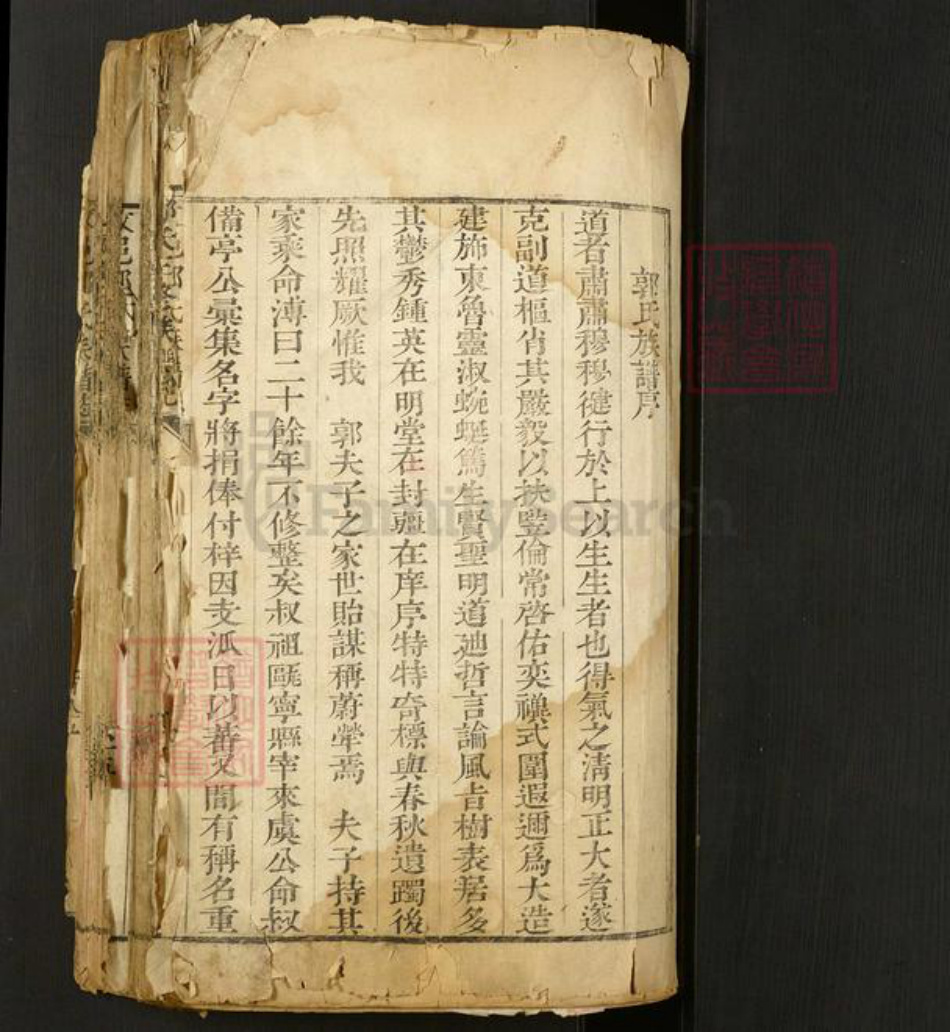 郭氏族譜序
道者肅肅穆穆健行於上以生生者也得氣之淸明正大者遂
克副道樞省其嚴毅以扶豎倫常啓佑奕禩式圍遐邇爲大造
建施東魯靈淑蜿蜒篤生賢聖明道廸哲言論風旨樹表居多
其鬱秀鍾英在明堂在封疆在庠序特特奇標與春秋遺躅後
先照耀厥惟我　郭夫子之家世貽謀稱蔚犖焉　夫子持其
家乘命溥曰二十餘年不修整矣叔祖甌寧縣宰來虞公命叔
備亭公彙集名字將捐俸付梓因支派日以蕃又間有稱名重
FamilySearch